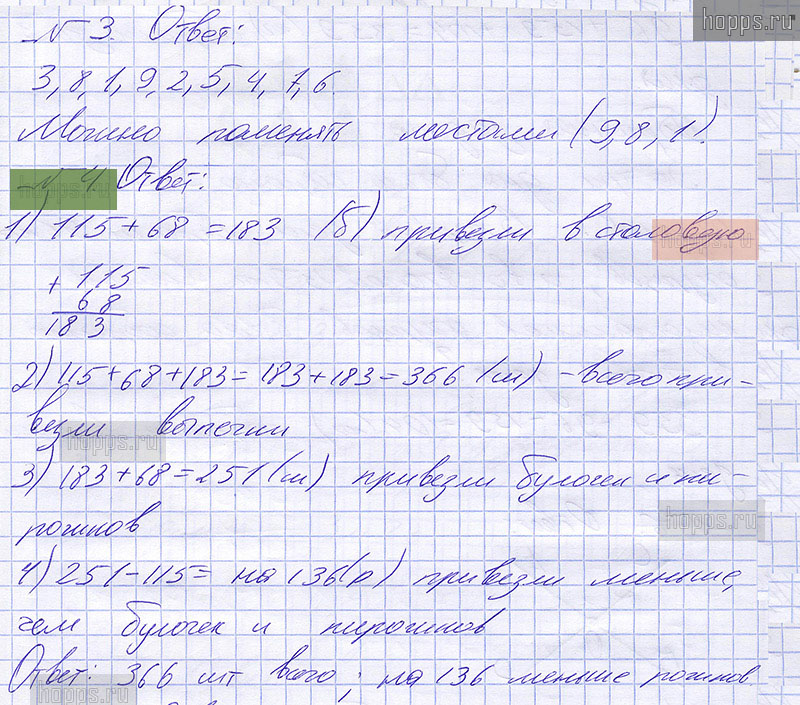 hopps.ru
№ 3. Ответ:
3, 8, 1, 9, 2, 5, 4, 7, 6.
Можно поменять местами (9, 8, 1).
№ 4. Ответ:
hopps.ru
1) 115 + 68 = 183 (б) привезли в столовую
hopps.ru
+ 115
68
183
2) 115 + 68 + 183 = 183 + 183 = 366 (ш) - всего при-
везли выпечки
hopps.ru
3) 183 + 68 = 251 (ш) привезли булочек и пи-
рожков
hopps.ru
4) 251 - 115 = на 136 (р) привезли меньше,
чем булочек и пирожков
Ответ: 366 шт всего; на 136 меньше рожков
hopps.ru